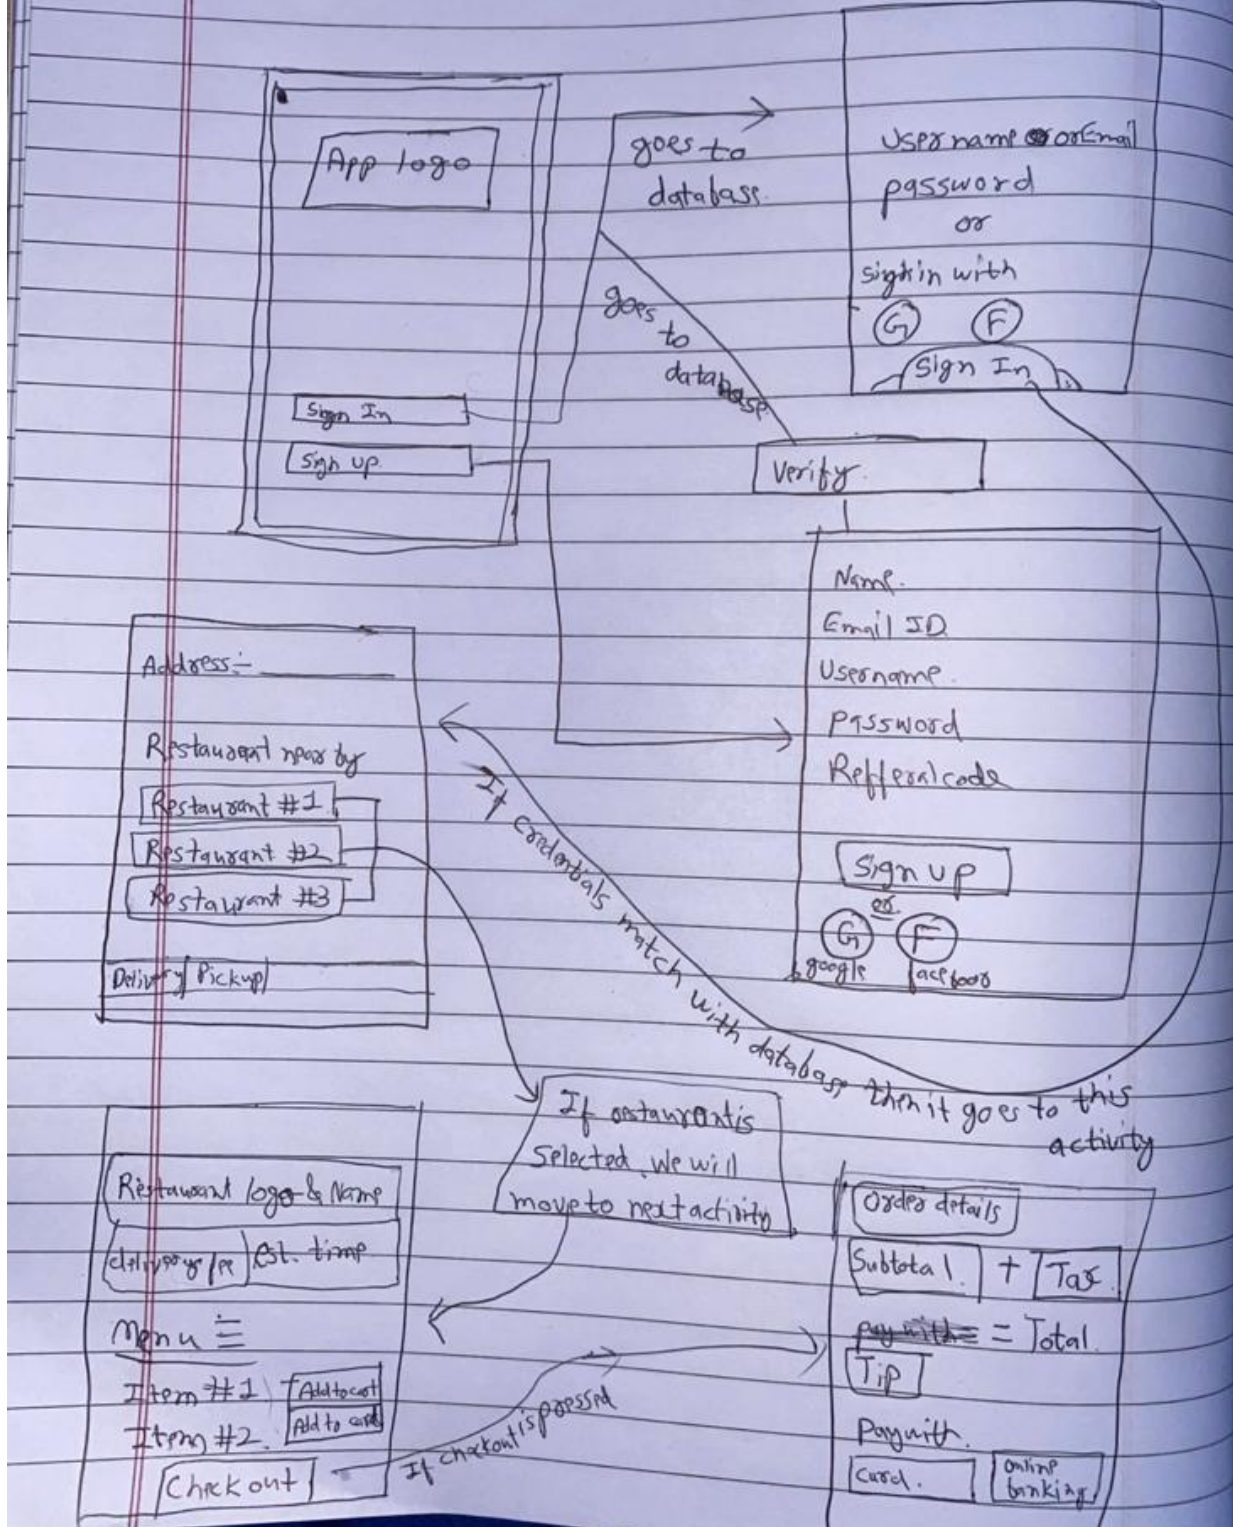 App logo
Sign In
Sign up
goes to
database
goes
to
database
Username or Email
password
or
sign in with
G F
Sign In
Verify.
Name.
Email ID
Username.
password
Refferal code
Sign up
or
G F
google facebook
Address:-
Restaurant near by
Restaurant #1
Restaurant #2
Restaurant #3
Delivery Pickup
If credentials match with database then it goes to this
activity
If restaurant is
selected, we will
move to next activity
Restaurant logo & Name
est. time
Menu
Item #1 Add to cart
Item #2. Add to cart
Checkout
If checkout is pressed
Order details
Subtotal + Tax
pay with = Total
Tip
Pay with.
Card. Online
banking